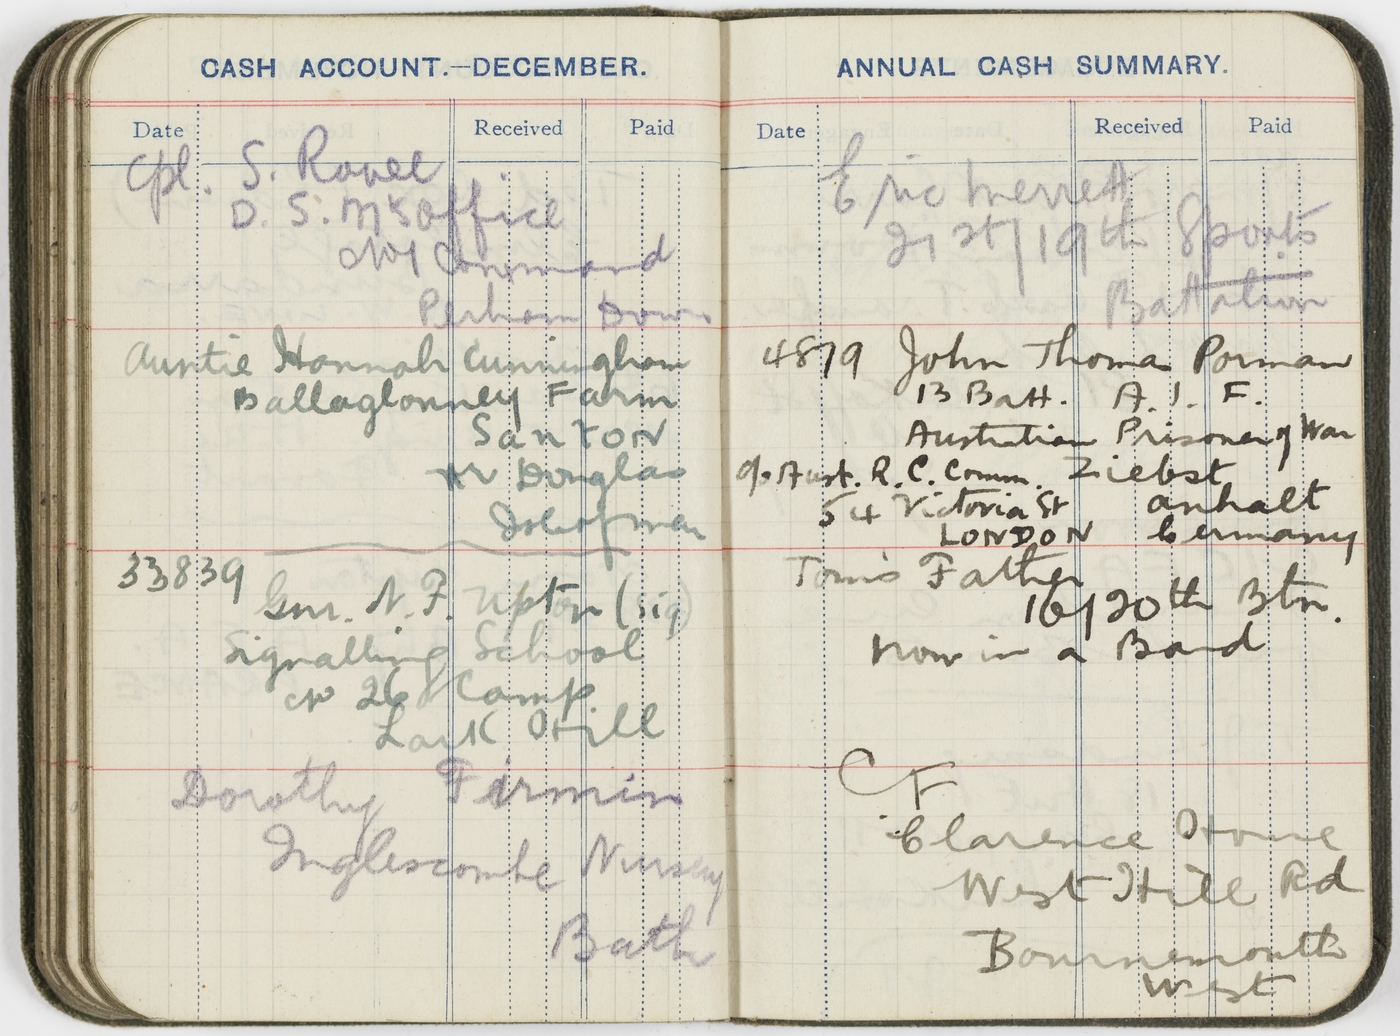 CASH ACCOUNT.—DECEMBER.
Date Received Paid
Cpl. S. Rovel
D. S. M's office
No 1 Command
Perham Down
Auntie Hannah Cunningham
Ballaglonney Farm
SANTON
Nr Douglas
Isle of man
33839
Gnr. N. F. Upton (sig)
Signalling School
No 26 Camp.
Lark Hill
Dorothy Firmin
Inglescombe Nursery
Bath
ANNUAL CASH SUMMARY.
Date Received Paid
Eric Merrett
21st/19th Sports
Battalion
4879 John Thomas Porman
13 Batt. A. I. F.
Australian Prisoner of War
c/o Aust. R. C. Comm. Ziebst
54 Victoria St anhalt
LONDON Germany
Tom's Father
16/20th Btn.
Now in a Band
C F
Clarence House
West Hill Rd
Bournemouth
West